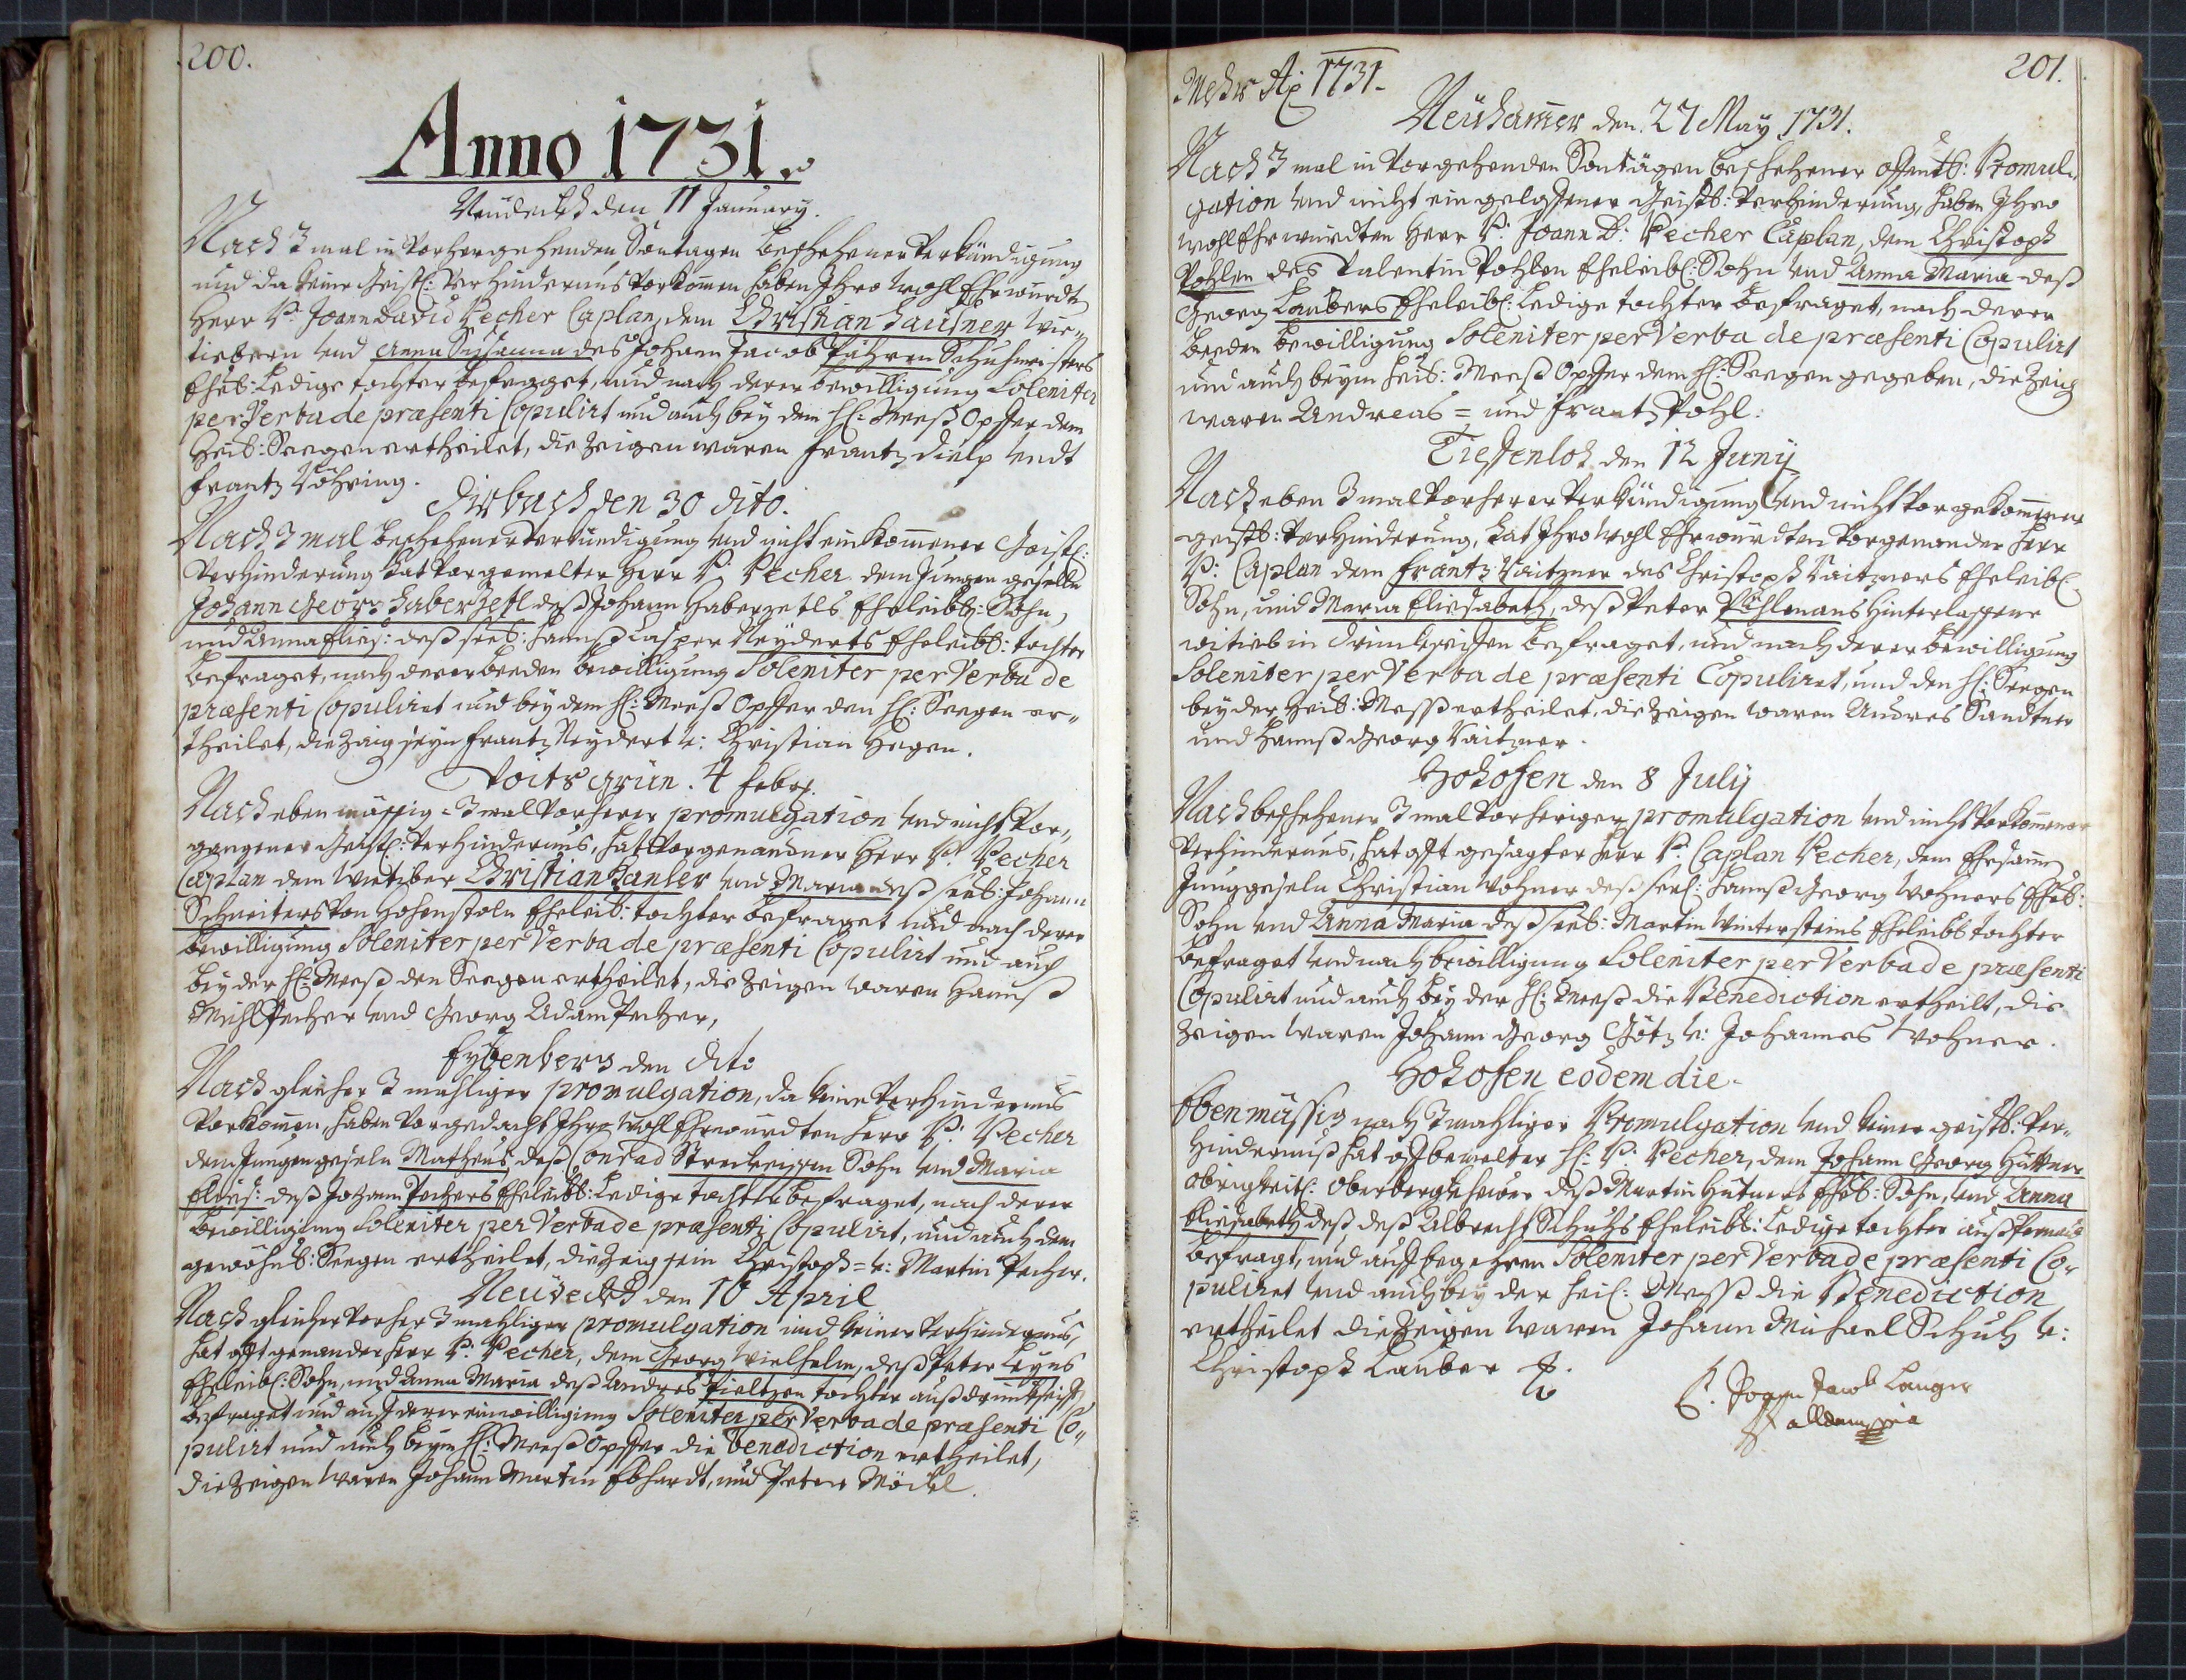 200.
Anno 1731.
Neudeckh den 11 January.
Nach 3 mal in vorhergehenden Sontagen beschehener verkündigung
und da keine Geistl: verhindernus vorkomen haben Ihro wohl Ehrwürdt
Herr P. Joann David Pecher Caplan, dem Christian Hausner wit„
tiebern und Anna Susanna des Johann Jacob Schuhmeisters
Ehel: Ledige tochter befraget, und nach derer bewilligung Soleniter
per Verba de præsenti Copulirt und auch bey dem Hl: Meeß Opffer dem
Heil: Seegen ertheilet, die Zeigen waren Frantz und
Frantz
den 30 dito.
Nach 3 mal beschehener Verkündigung und nicht einkomener Geistl:
verhinderung hat vorgemelter Herr P. Pecher dem Jungen gesellen
Johann Georg Haberzetl deß Johann Haberzetls Eheleibl: Sohn,
und Anna Elies: deß seel: Hannß Casper Neyderts Eheleibl: tochter
befraget, nach derer beeden bewilligung Soleniter per Verba de
præsenti Copuliret und bey dem Hl: Meeß Opffer den Hl: Seegen er„
theilet, die Zeig seyn Frantz Neydert u: Christian Hegen.
Voitsgrün. 4 Febr.
Nach eben mässig 3 mal vorherer promulgation und nicht vor„
gangener Geistl: verhindernus, hat vorgenandner Herr P. Pecher
Caplan dem Wietiber Christian Hanser und Maria deß seel: Johann
Schneiters von Hohenstoln Eheleibl: tochter befraget und nach derer
bewilligung Soleniter per Verba de præsenti Copulirt und auch
bey der Hl: Meeß den Seegen ertheilet, die Zeigen waren Hannß
Michl Pecher und Georg Adam Pecher,
Eybenberg den dito
Nach gleicher 3 mahliger promulgation, da keine Verhindernus
vorkomen, haben vorgedacht Ihro Wohl Ehrwürdten Herr P: Pecher
dem Jungen geseln Matheus deß Conrad Streckeissen Sohn und Maria
Elies: deß Johann Pechers Eheleibl: Ledige tochter befraget, nach derer
bewilligung Soleniter per Verba de præsenti Copulirt, und auch dem
gewöhnl: Seegen ertheilet, die Zeig sein Christoph = u: Martin Pecher.
Neudeckh den 10 April
Nach gleicher vorher 3 mahliger promulgation und keiner verhindernus,
hat offt genander Herr P: Pecher, dem Georg Wielhelm, deß Peter
Eheleibl: Sohn, und Anna Maria deß Andres tochter auß
befraget und auff derer einwilligung Soleniter per Verba de præsenti Co„
pulirt und auch beym Hl: Meeß Opffer die Benediction ertheilet,
die Zeigen waren Johann Martin Ebhardt, und Peter Möckl.
201.
Mehr Ao 1731.
Neuhamer den 27 May 1731.
Nach 3 mal in vorgehenden Sontägen beschehener offentl: Promul„
gation und nicht eingeloffener Geistl: verhinderung, haben Ihro
wohl Ehrwürdten Herr P. Joann D: Pecher Caplan, dem Christoph
Pohlen des Valentin Pohlen Eheleibl: Sohn und Anna Maria deß
Georg Laubers Eheleibl: Ledige tochter befraget, nach derer
beeden bewilligung Soleniter per Verba de præsenti Copulirt
und auch beym Heil: Meeß Opffer dem Hl: Seegen gegeben, die Zeig
waren Andreas = und Frantz Pohl:
Tieffenloh den 12 Juny
Nach eben 3 mal vorherer verkündigung und nicht vorgekommener
geistl: verhinderung, hat Ihro Wohl Ehrwürdten vorgenander Herr
P: Caplan dem Frantz Naitzner des Christoph Naitzners Eheleibl:
Sohn, und Maria Eliesabeth, deß Peter Pihlmans hinterlassene
witib in befraget, und nach derer bewilligung
Soleniter per Verba de præsenti Copuliret, und den Hl: Seegen
bey der Heil: Mesß ertheilet, die Zeigen waren Andres Sandtner
und Hannß Georg Naitzner.
Hohofen den 8 July
Nach beschehener 3 mal vorheriger promulgation und nicht vorkomener
verhindernus, hat offt gesagter Herr P. Caplan Pecher, dem Ehrsamen
Junggeseln Christian Wohner deß seel: Hannß Georg Wohners Ehel:
Sohn und Anna Maria deß seel: Martin Wintersteins Eheleibl tochter
befraget und nach bewilligung Soleniter per Verba de præsenti
Copulirt und auch bey der Hl: Meeß die Benediction ertheilt, die
Zeigen waren Johann Georg Götz u: Johannes Wohner.
Hohofen eodem die.
Ebenmässig nach 3 mahliger Promulgation und keiner geistl: ver„
hindernuß hat offt bemelter H: P: Pecher, dem Johann Georg Hüttner
obrigkeitl: Oberberghschaer deß Martin Hütners Ehel: Sohn, und Anna
Eliesabeth deß, deß Albrecht Schuhs Eheleibl: Ledige tochter auß
befragt, und auff begehren Soleniter per Verba de præsenti Co„
puliret und auch bey der heil: Mesß die Benediction
ertheilet die Zeigen waren Johann Michael Schuh u:
Christoph Lauber
P. Joann Jacob Langer